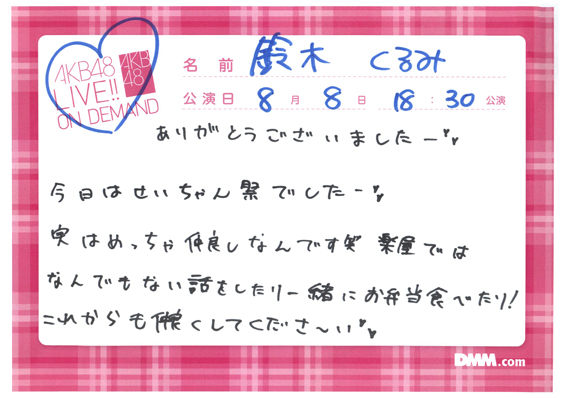 AKB48
LIVE!!
ON DEMAND
AKB
48
名前 鈴木 くるみ
公演日 8月 8日 18:30公演
ありがとうございましたー
今日はせいちゃん祭でしたー
実はめっちゃ仲良しなんです笑 楽屋では
なんでもない話をしたり一緒にお弁当食べたり!
これからも仲良くしてくださ〜い
DMM.com